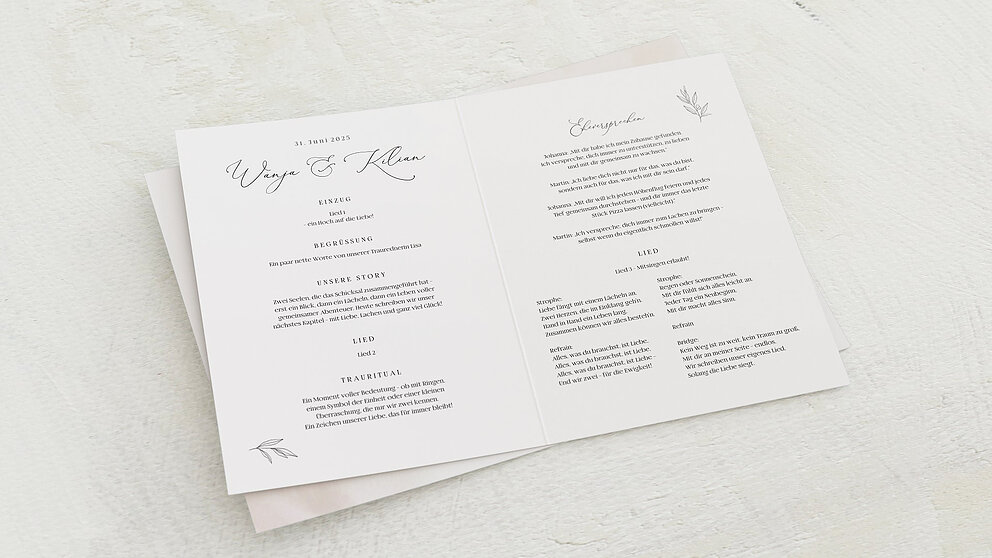 31. Juni 2025
Wanja & Kilian
EINZUG
Lied 1
- ein Hoch auf die Liebe!
BEGRÜSSUNG
Ein paar nette Worte von unserer Traurednerin Lisa
UNSERE STORY
Zwei Seelen, die das Schicksal zusammengeführt hat –
erst ein Blick, dann ein Lächeln, dann ein Leben voller
gemeinsamer Abenteuer. Heute schreiben wir unser
nächstes Kapitel – mit Liebe, Lachen und ganz viel Glück!
LIED
Lied 2
TRAURITUAL
Ein Moment voller Bedeutung – ob mit Ringen,
einem Symbol der Einheit oder einer kleinen
Überraschung, die nur wir zwei kennen.
Ein Zeichen unserer Liebe, das für immer bleibt!
Eheversprechen
Johanna: „Mit dir habe ich mein Zuhause gefunden
Ich verspreche, dich immer zu unterstützen, zu lieben
und mit dir gemeinsam zu wachsen."
Martin: „Ich liebe dich nicht nur für das, was du bist,
sondern auch für das, was ich mit dir sein darf."
Johanna: „Mit dir will ich jeden Höhenflug feiern und jedes
Tief gemeinsam durchstehen – und dir immer das letzte
Stück Pizza lassen (vielleicht)."
Martin: „Ich verspreche, dich immer zum Lachen zu bringen –
selbst wenn du eigentlich schmollen willst!"
LIED
Lied 3 – Mitsingen erlaubt!
Strophe:
Liebe fängt mit einem Lächeln an.
Zwei Herzen, die im Einklang geh'n.
Hand in Hand ein Leben lang.
Zusammen können wir alles besteh'n.
Refrain:
Alles, was du brauchst, ist Liebe.
Alles, was du brauchst, ist Liebe.
Alles, was du brauchst, ist Liebe –
Und wir zwei – für die Ewigkeit!
Strophe:
Regen oder Sonnenschein,
Mit dir fühlt sich alles leicht an.
Jeder Tag ein Neubeginn,
Mit dir macht alles Sinn.
Refrain
Bridge:
Kein Weg ist zu weit, kein Traum zu groß,
Mit dir an meiner Seite – endlos.
Wir schreiben unser eigenes Lied,
Solang die Liebe siegt.